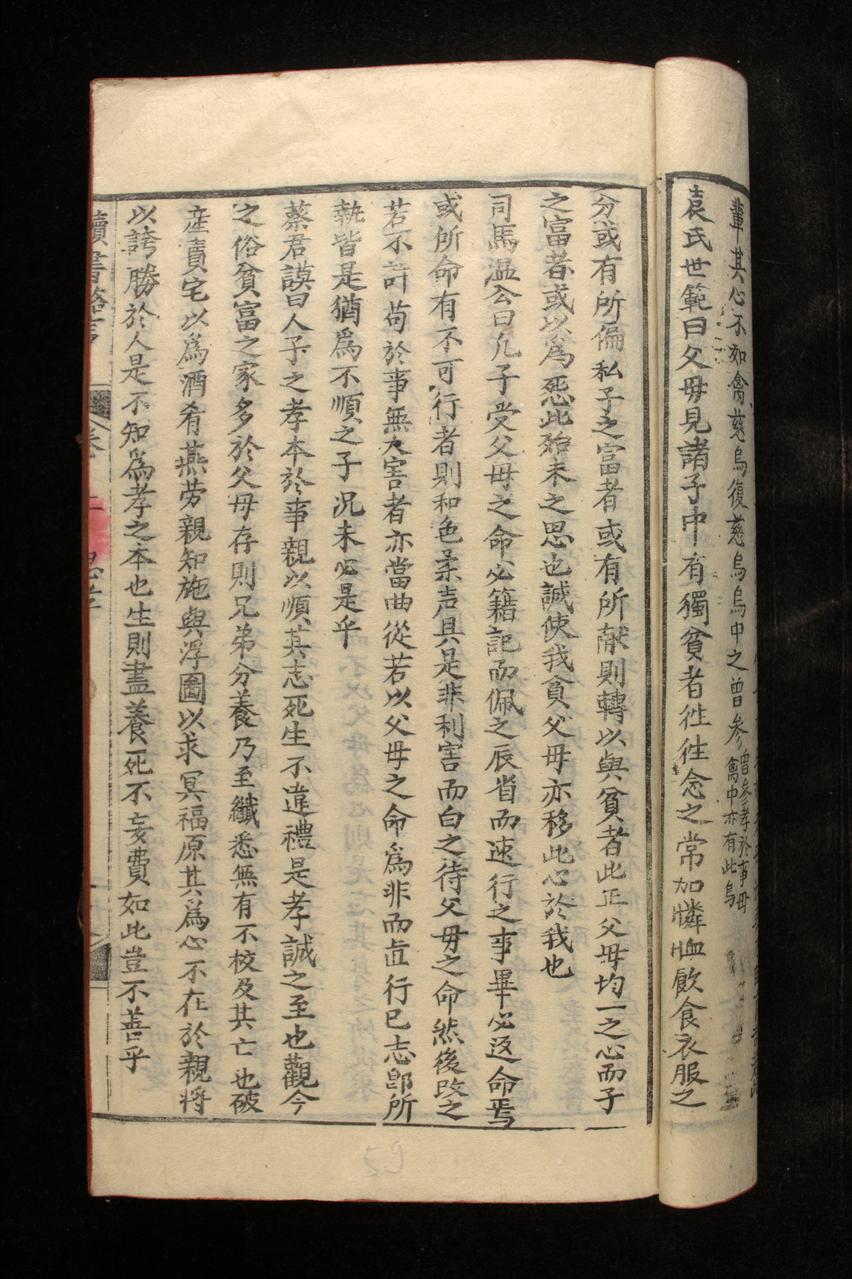 輩其心不如禽慈烏復慈烏烏中之曾参曾參孝於事母禽中亦有此烏
袁氏世範曰父母見諸子中有獨貧者徃徃念之常加憐恤飲食衣服之
分或有所偏私子之富者或有所献則轉以與貧者此正父母均一之心而子
之富者或以為怨此殆未之思也誠使我貧父母亦移此心於我也
司馬温公曰凡子受父母之命必籍記而佩之辰省而速行之事畢必返命焉
或所命有不可行者則和色柔声具是非利害而白之待父母之命然後改之
若不許苟於事無大害者亦當曲從若以父母之命為非而直行已志郎所
執皆是猶為不順之子况未必是乎
蔡君謨曰人子之孝本於事親以順其志死生不違禮是孝誠之至也觀今
之俗貧富之家多於父母存則兄弟分養乃至纖悉無有不校及其亡也破
産賣宅以為酒肴燕劳親知施與浮圖以求冥福原其為心不在於親将
以誇勝於人是不知為孝之本也生則盡養死不妄費如此豈不善乎
讀書